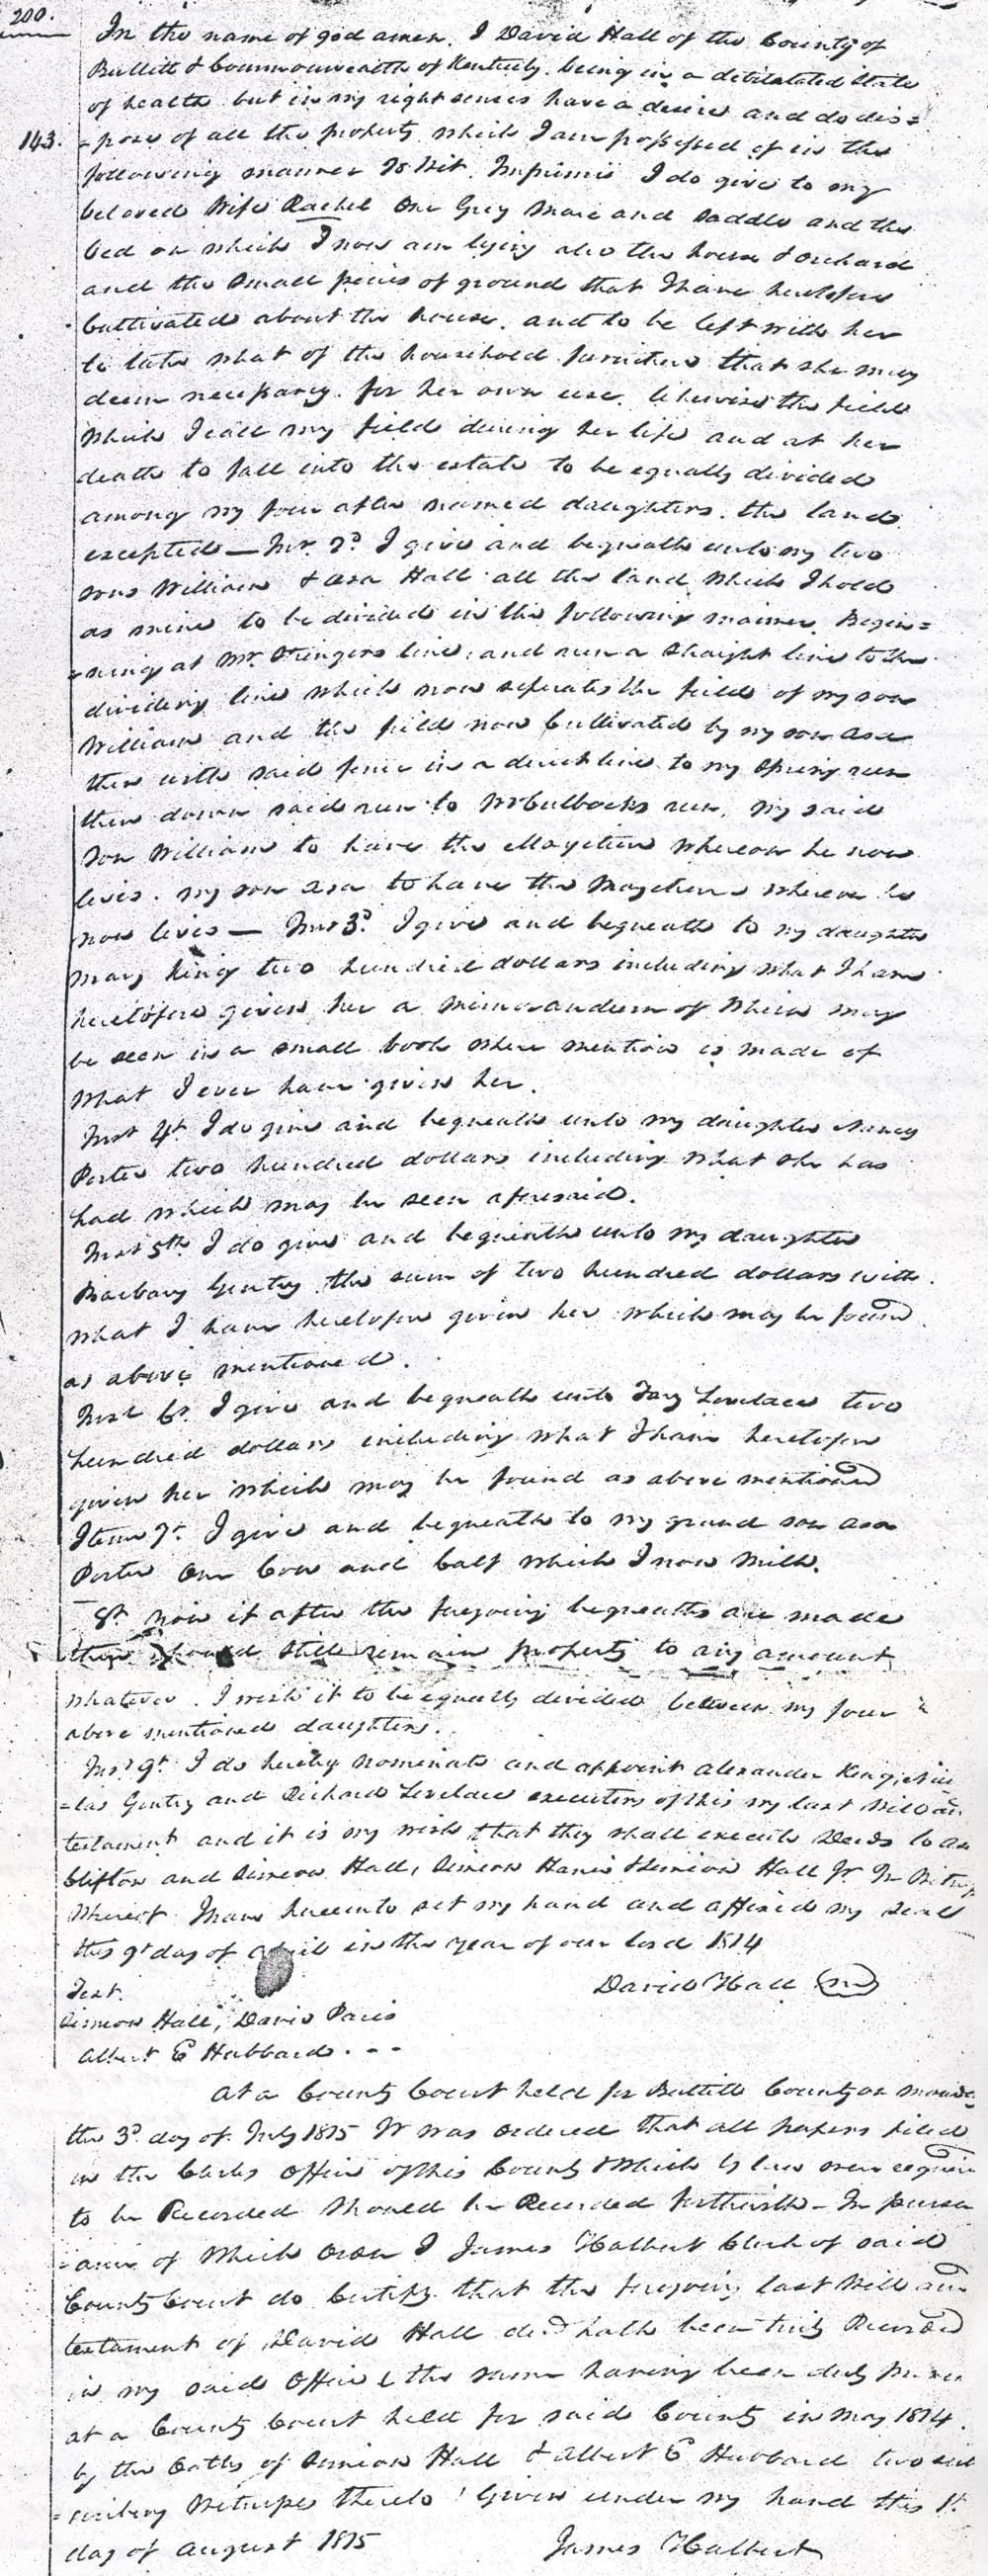 200.
In the name of god amen. I David Hall of the County of
Bullitt & Commonwealth of Kentucky. being in a debilatated State
of health but in my right sences have a desire and do dis=
143.
=pose of all the property which I am possessed of in the
following manner To Wit. Imprimis I do give to my
beloved Wife Rachel One Grey Mare and Saddle and the
bed on which I now am lying also the house & orchard
and the Small peices of ground that I have heretofore
Cultivated about the house. and to be left with her
to take what of the household furniture that she may
deem necessary. for her own use. likewise the field
Which I call my field during her life and at her
death to fall into the estate to be equally divided
among my four after named daughters. the land
excepted — 2d I give and bequeath unto my two
sons William & Asa Hall all the land Which I hold
as mine to be divided in the following manner. Begin=
=ning at Mr. line, and run a straight line to the
dividing line which now seperates the field of my son
William and the field now Cultivated by my son Asa
then with said fence in a direct line to my Spring run
then down said run to McCullochs run, My said
Son William to have the Mayetive Whereon he now
lives. my son Asa to have the Mayetive whereon he
now lives — 3d. I give and bequeath to my daughter
Mary King two hundred dollars including what I have
heretofore given her a memorandum of Which may
be seen in a small book where mention is made of
What I ever have given her.
4t I do give and bequeath unto my daughter Nancy
Porter two hundred dollars including what she has
had which may be seen aforesaid.
5th I do give and bequeath unto my daughter
Barbary Gentry the sum of two hundred dollars with
what I have heretofore given her which may be found
as above mentioned.
6t. I give and bequeath unto Lovelace two
hundred dollars including what I have heretofore
given her which may be found as above mentioned
Item 7t. I give and bequeath to my grand son Asa
Porter One Cow and Calf which I now Milk.
8t now if after the foregoing bequeaths are made
there should still remain property to any amount
whatever. I wish it to be equally divided between my four
above mentioned daughters.
9t. I do hereby nominate and appoint Alexander King, Nic
=las Gentry and Richard Lovelace executors of this my last Will and
testament and it is my wish that they shall execute Deeds to
Clifton and Simeon Hall, Simeon Haris & Simeon Hall Jr. In Witness
Whereof I have hereunto set my hand and affixed my seal
this 9t day of April in the year of our lord 1814
David Hall
Test.
Simeon Hall, David Paris
Albert E Hubbard. - -
At a County Court held for Bullitt County on monday
the 3d day of July 1815 It was ordered that all papers filed
in the Clerks Office of this County & Which by law were require
to be Recorded Should be Recorded forthwith — In pursu
=ance of Which Order I James Halbert Clerk of said
County Court do Certify that the foregoing last Will and
testament of David Hall decd hath been truly Recorded
in my said Office & the same having been duly proven
at a County Court held for said County in May 1814.
by the Oaths of Simeon Hall & Albert E Hubbard two sub
=scribing Witnesses thereto Given under my hand this 1t.
day of August 1815
James Halbert